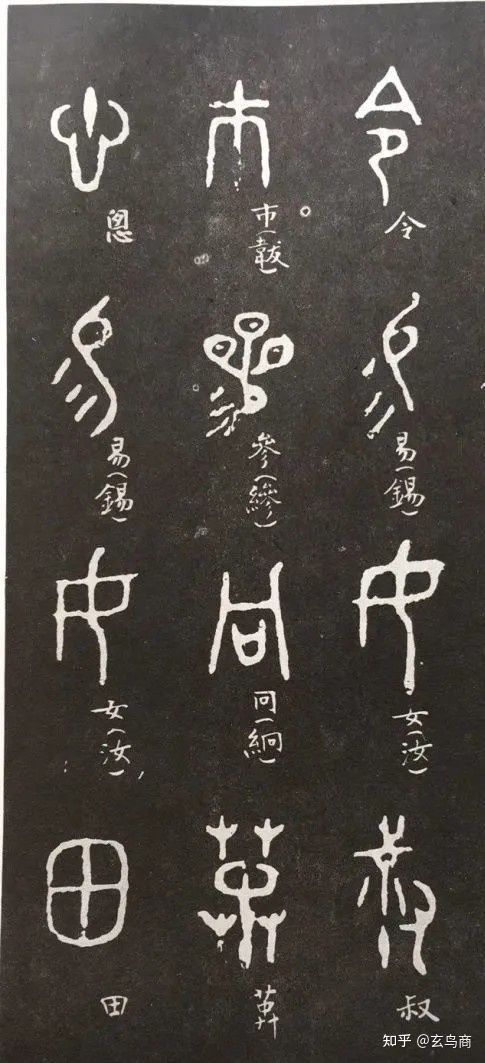 令
易(錫)
女(汝)
叔
巿(韍)
參(縿)
冋(絅)
悤
易(錫)
女(汝)
田
知乎 @玄鸟商